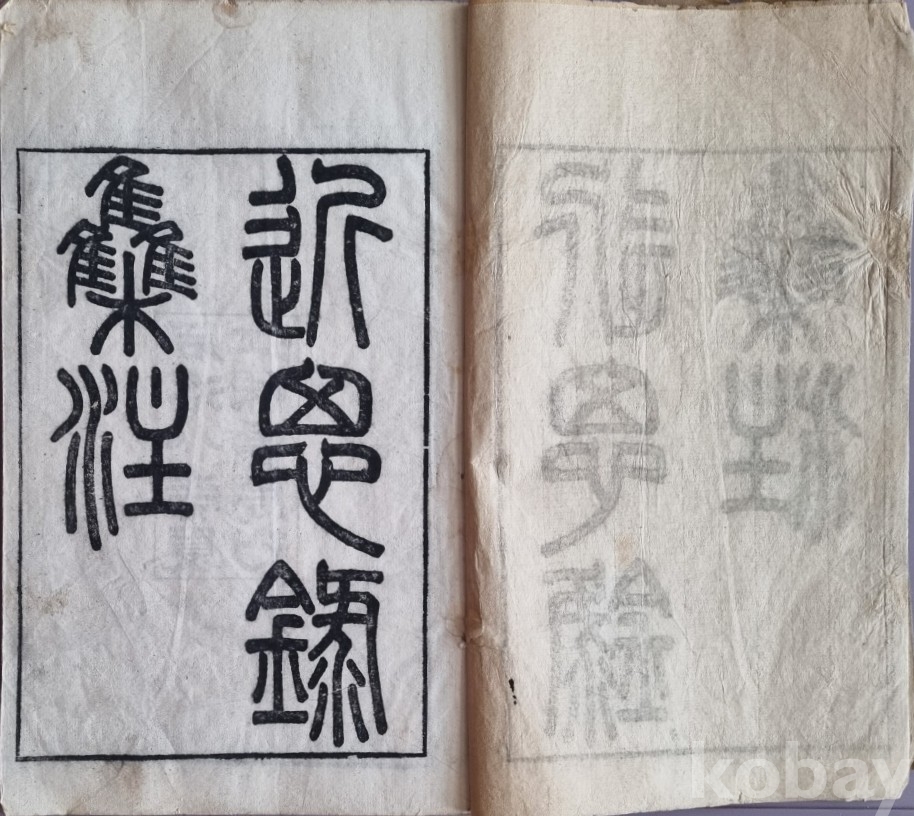 近思錄
集注
kobay